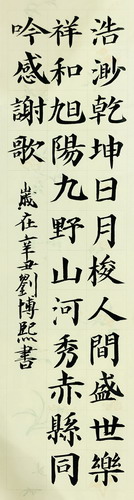 浩渺乾坤日月梭人間盛世樂
祥和旭陽九野山河秀赤縣同
吟感謝歌
歲在辛丑劉博熙書